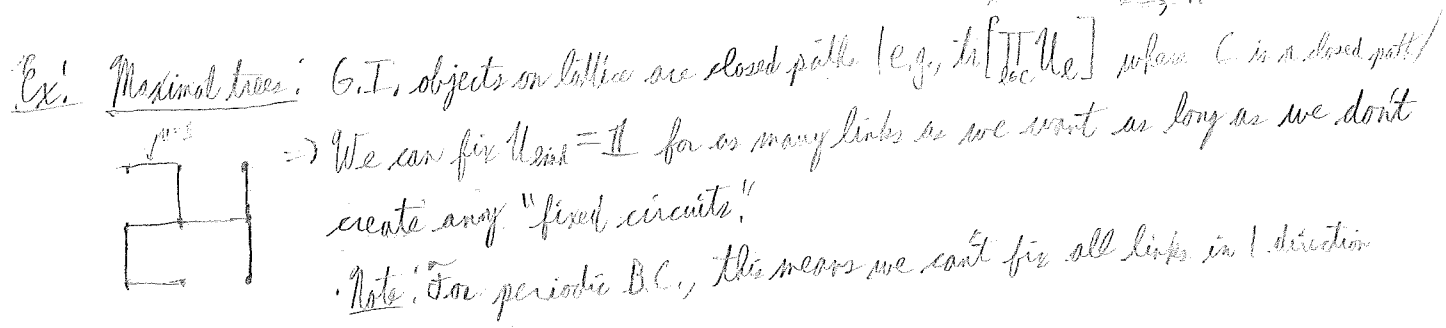 Ex: Maximal trees: G.I. objects on lattice are closed paths (e.g., tr[∏_{l∈C} U_l] where C is a closed path)
⇒ We can fix U_link = 𝟙 for as many links as we want as long as we don't
create any "fixed circuits".
· Note: For periodic B.C., this means we can't fix all links in 1 direction